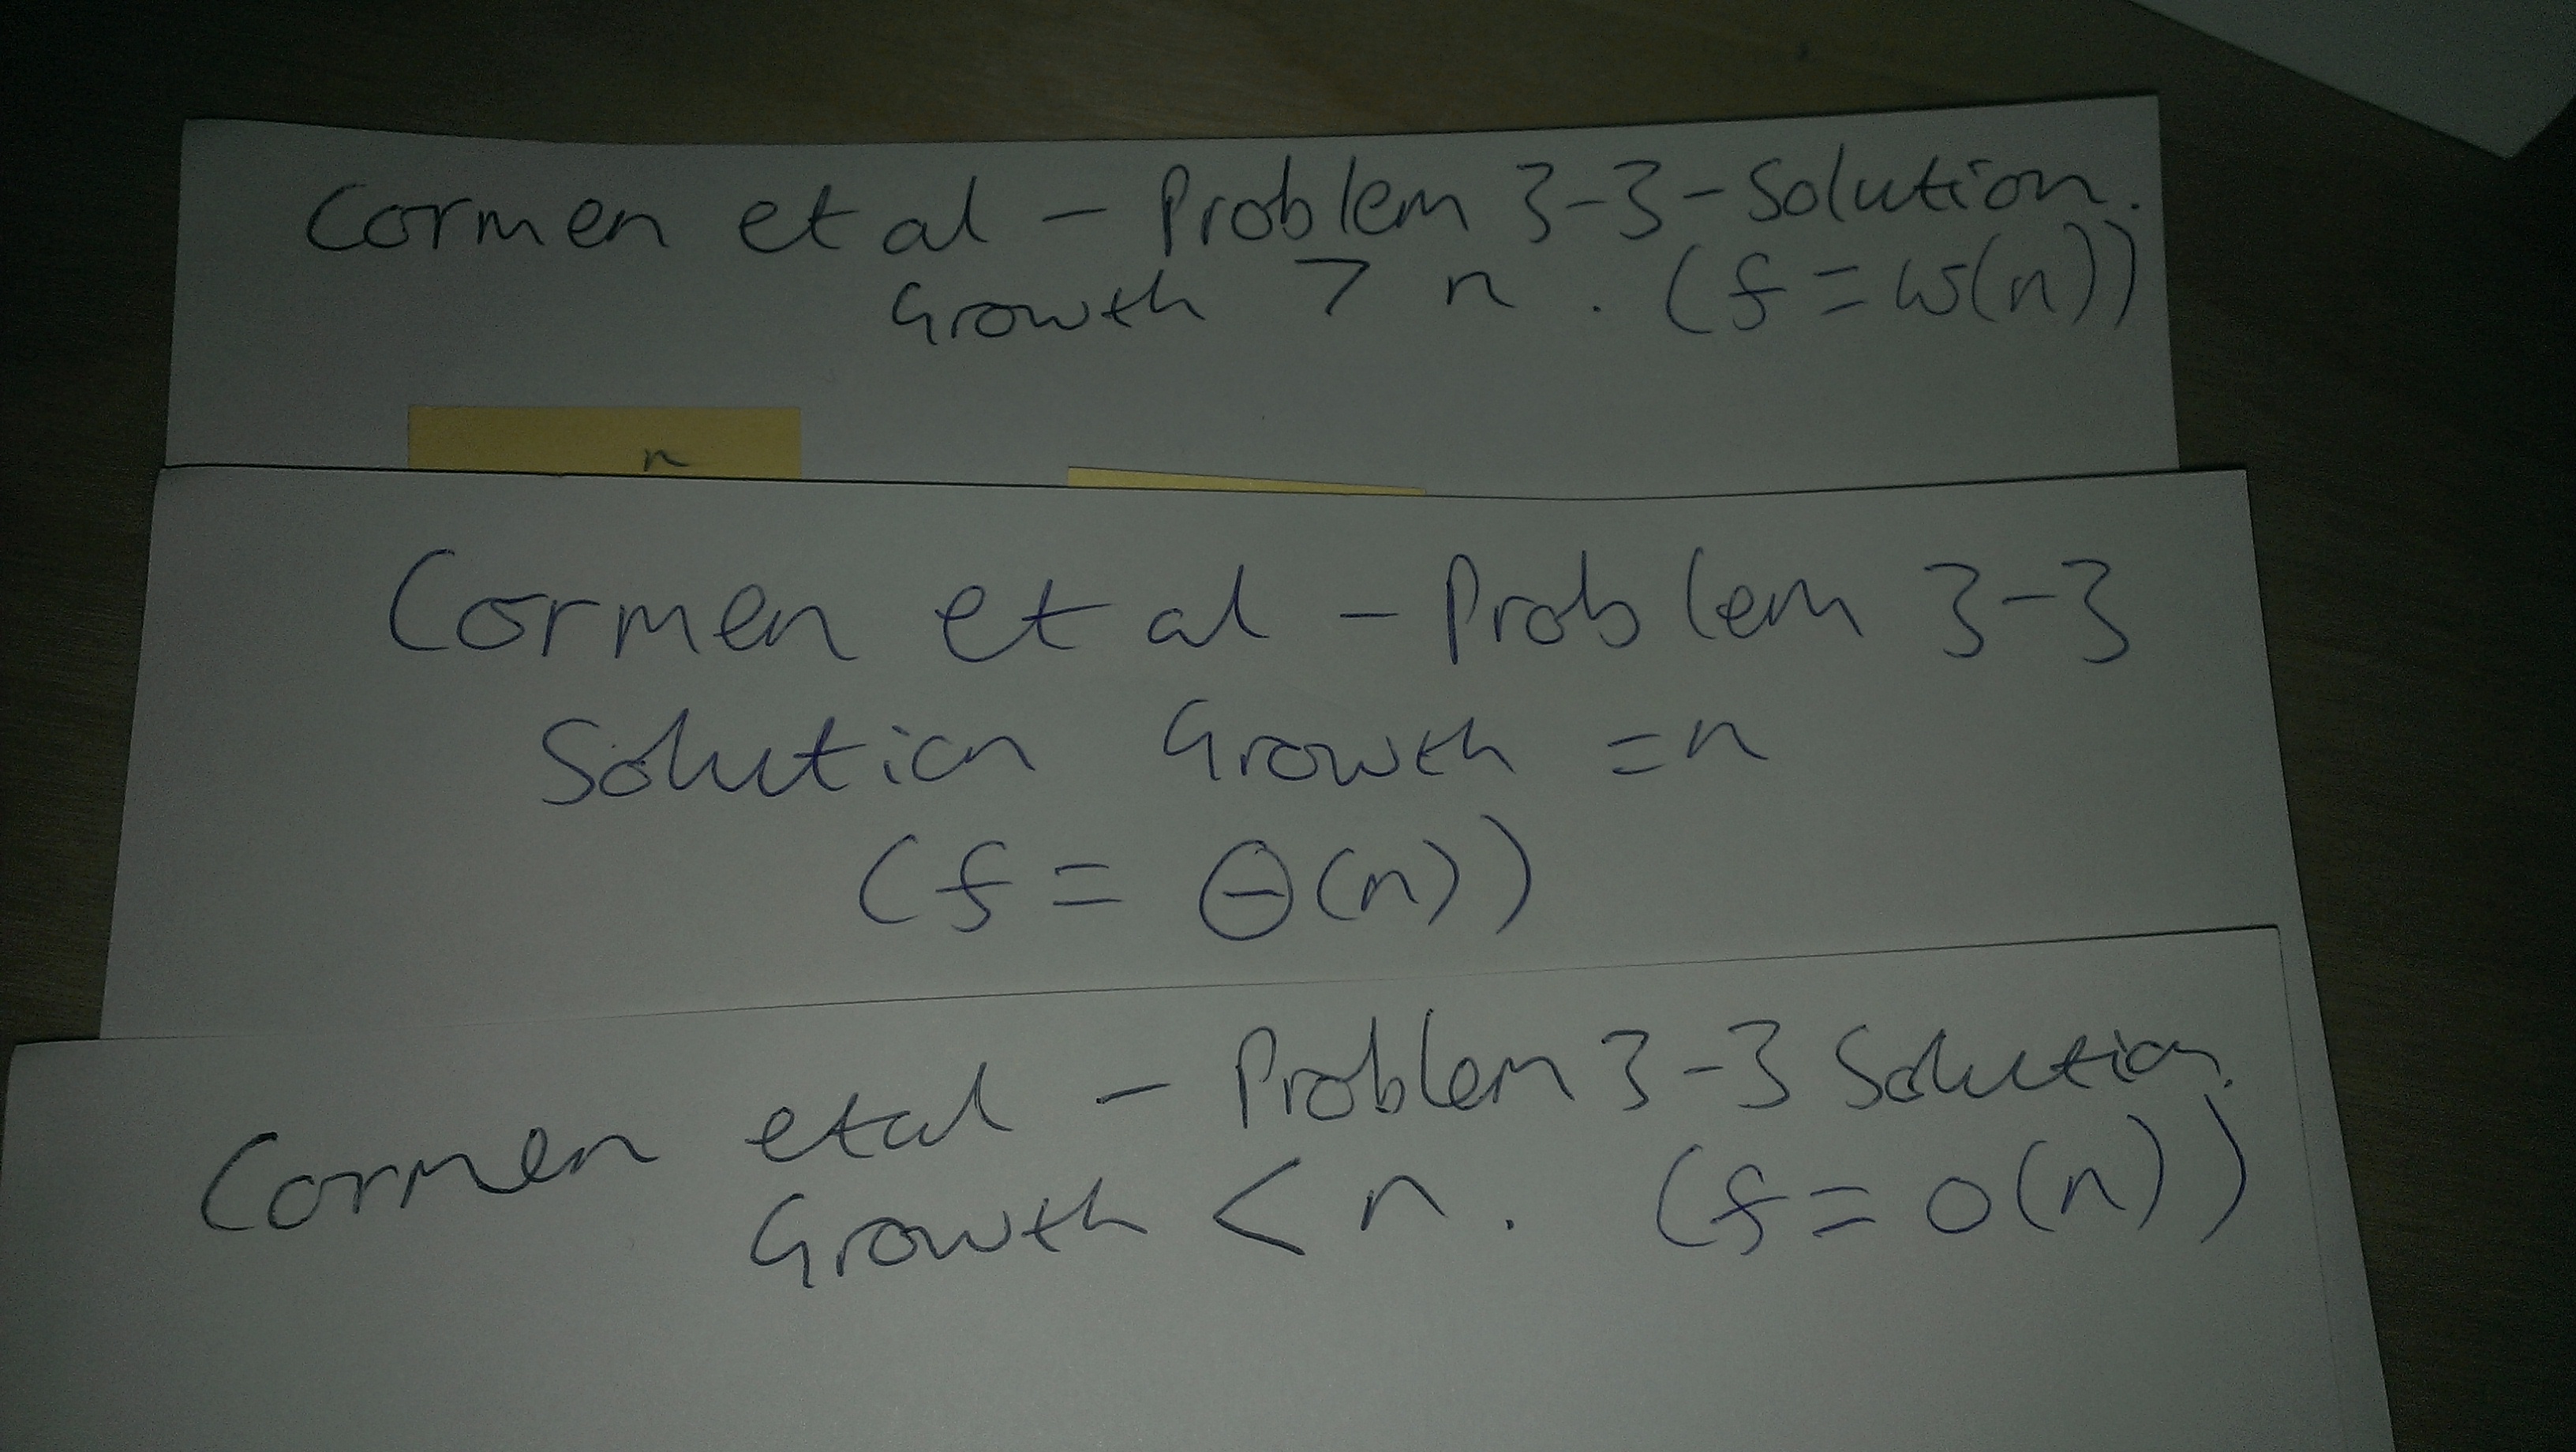 Cormen et al - Problem 3-3-Solution.
Growth > n. (f = ω(n))
n
Cormen et al - Problem 3-3
Solution Growth = n
(f = Θ(n))
Cormen et al - Problem 3-3 Solution.
Growth < n. (f = o(n))